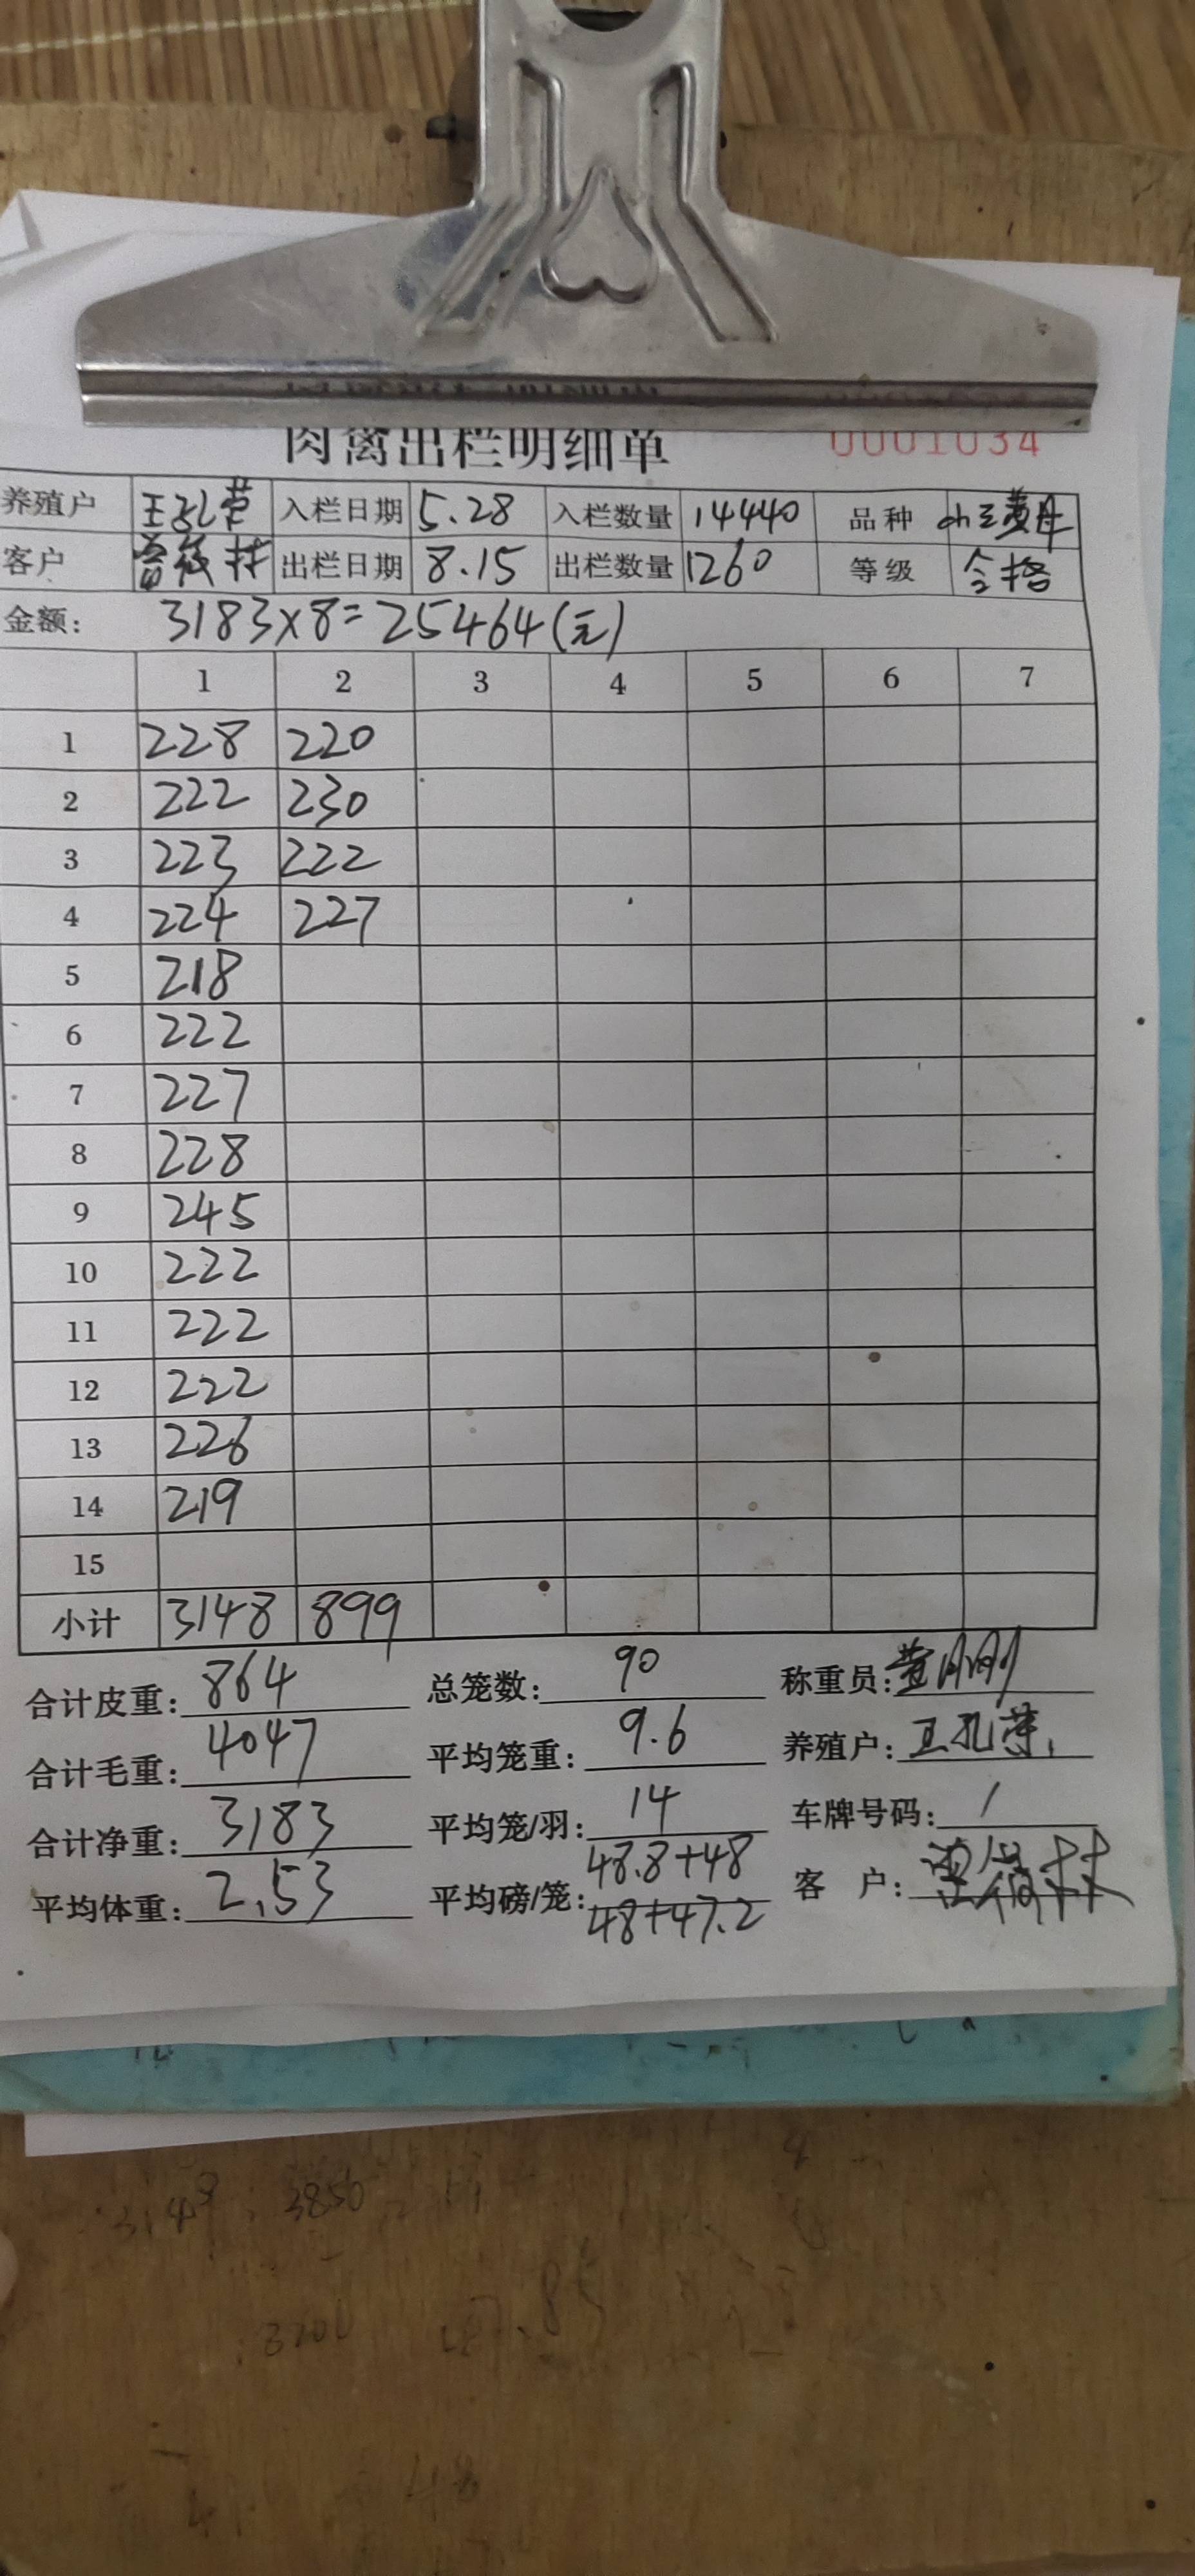 肉禽出栏明细单 0001034
养殖户 王孔营 入栏日期 5.28 入栏数量 14440 品种
客户 出栏日期 8.15 出栏数量 1260 等级 合格
金额: 3183×8=25464(元)
1 2 3 4 5 6 7
1 228 220
2 222 230
3 223 222
4 224 227
5 218
6 222
7 227
8 228
9 245
10 222
11 222
12 222
13 226
14 219
15
小计 3148 899
合计皮重: 864 总笼数: 90 称重员: 黄刚刚
合计毛重: 4047 平均笼重: 9.6 养殖户: 王孔营
合计净重: 3183 平均笼/羽: 14 车牌号码: /
平均体重: 2.53 平均磅/笼: 48.8+48 客户:
48+47.2
3850